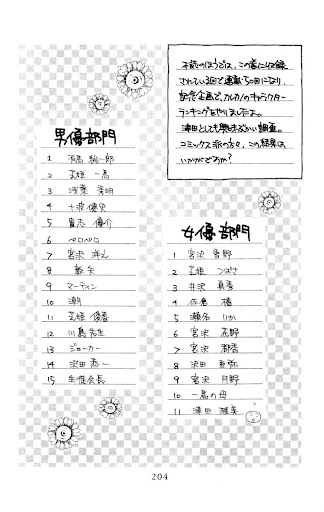 本誌のほうでは、この巻に収録
されている回で連載50回になり、
記念企画で、カレカノのキャラクター
ランキングをやりました。
津田としても興味ぶかい調査。
コミックス派の方々、この結果は
いかがですか?
男優部門
1 有馬 総一郎
2 芝姫 一馬
3 浅葉 秀明
4 十波 健史
5 貴志 優介
6 ペロペロ
7 宮沢 洋之
8 敦矢
9 マーティン
10 潮
11 芝姫 優春
12 川島先生
13 ジョーカー
14 沢田 恭一
15 生徒会長
女優部門
1 宮沢 雪野
2 芝姫 つばさ
3 井沢 真秀
4 佐倉 椿
5 瀬名 りか
6 宮沢 花野
7 宮沢
8 沢田 亜弥
9 宮沢 月野
10 一馬の母
11 津田 雅美
204